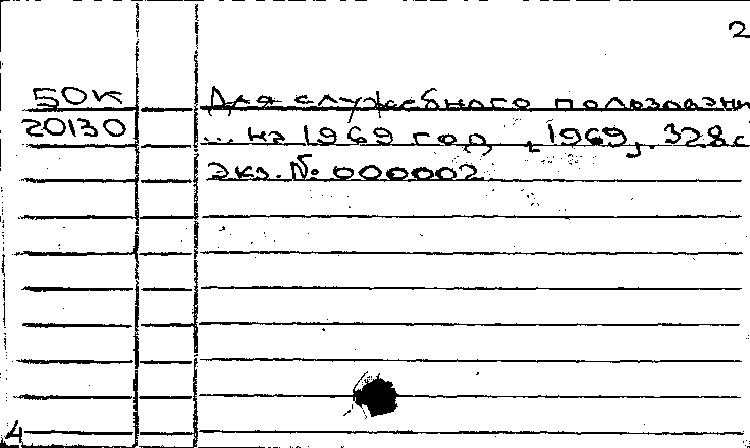 2
50К Для служебного пользовани
20130 ... на 1969 год, [1969]. 328 с
Экз. № 000002
4